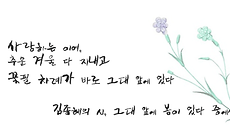 사랑하는 이여,
추운 겨울 다 지내고
꽃필 차례가 바로 그대 앞에 있다
김종해의 시, 그대 앞에 봄이 있다 중에